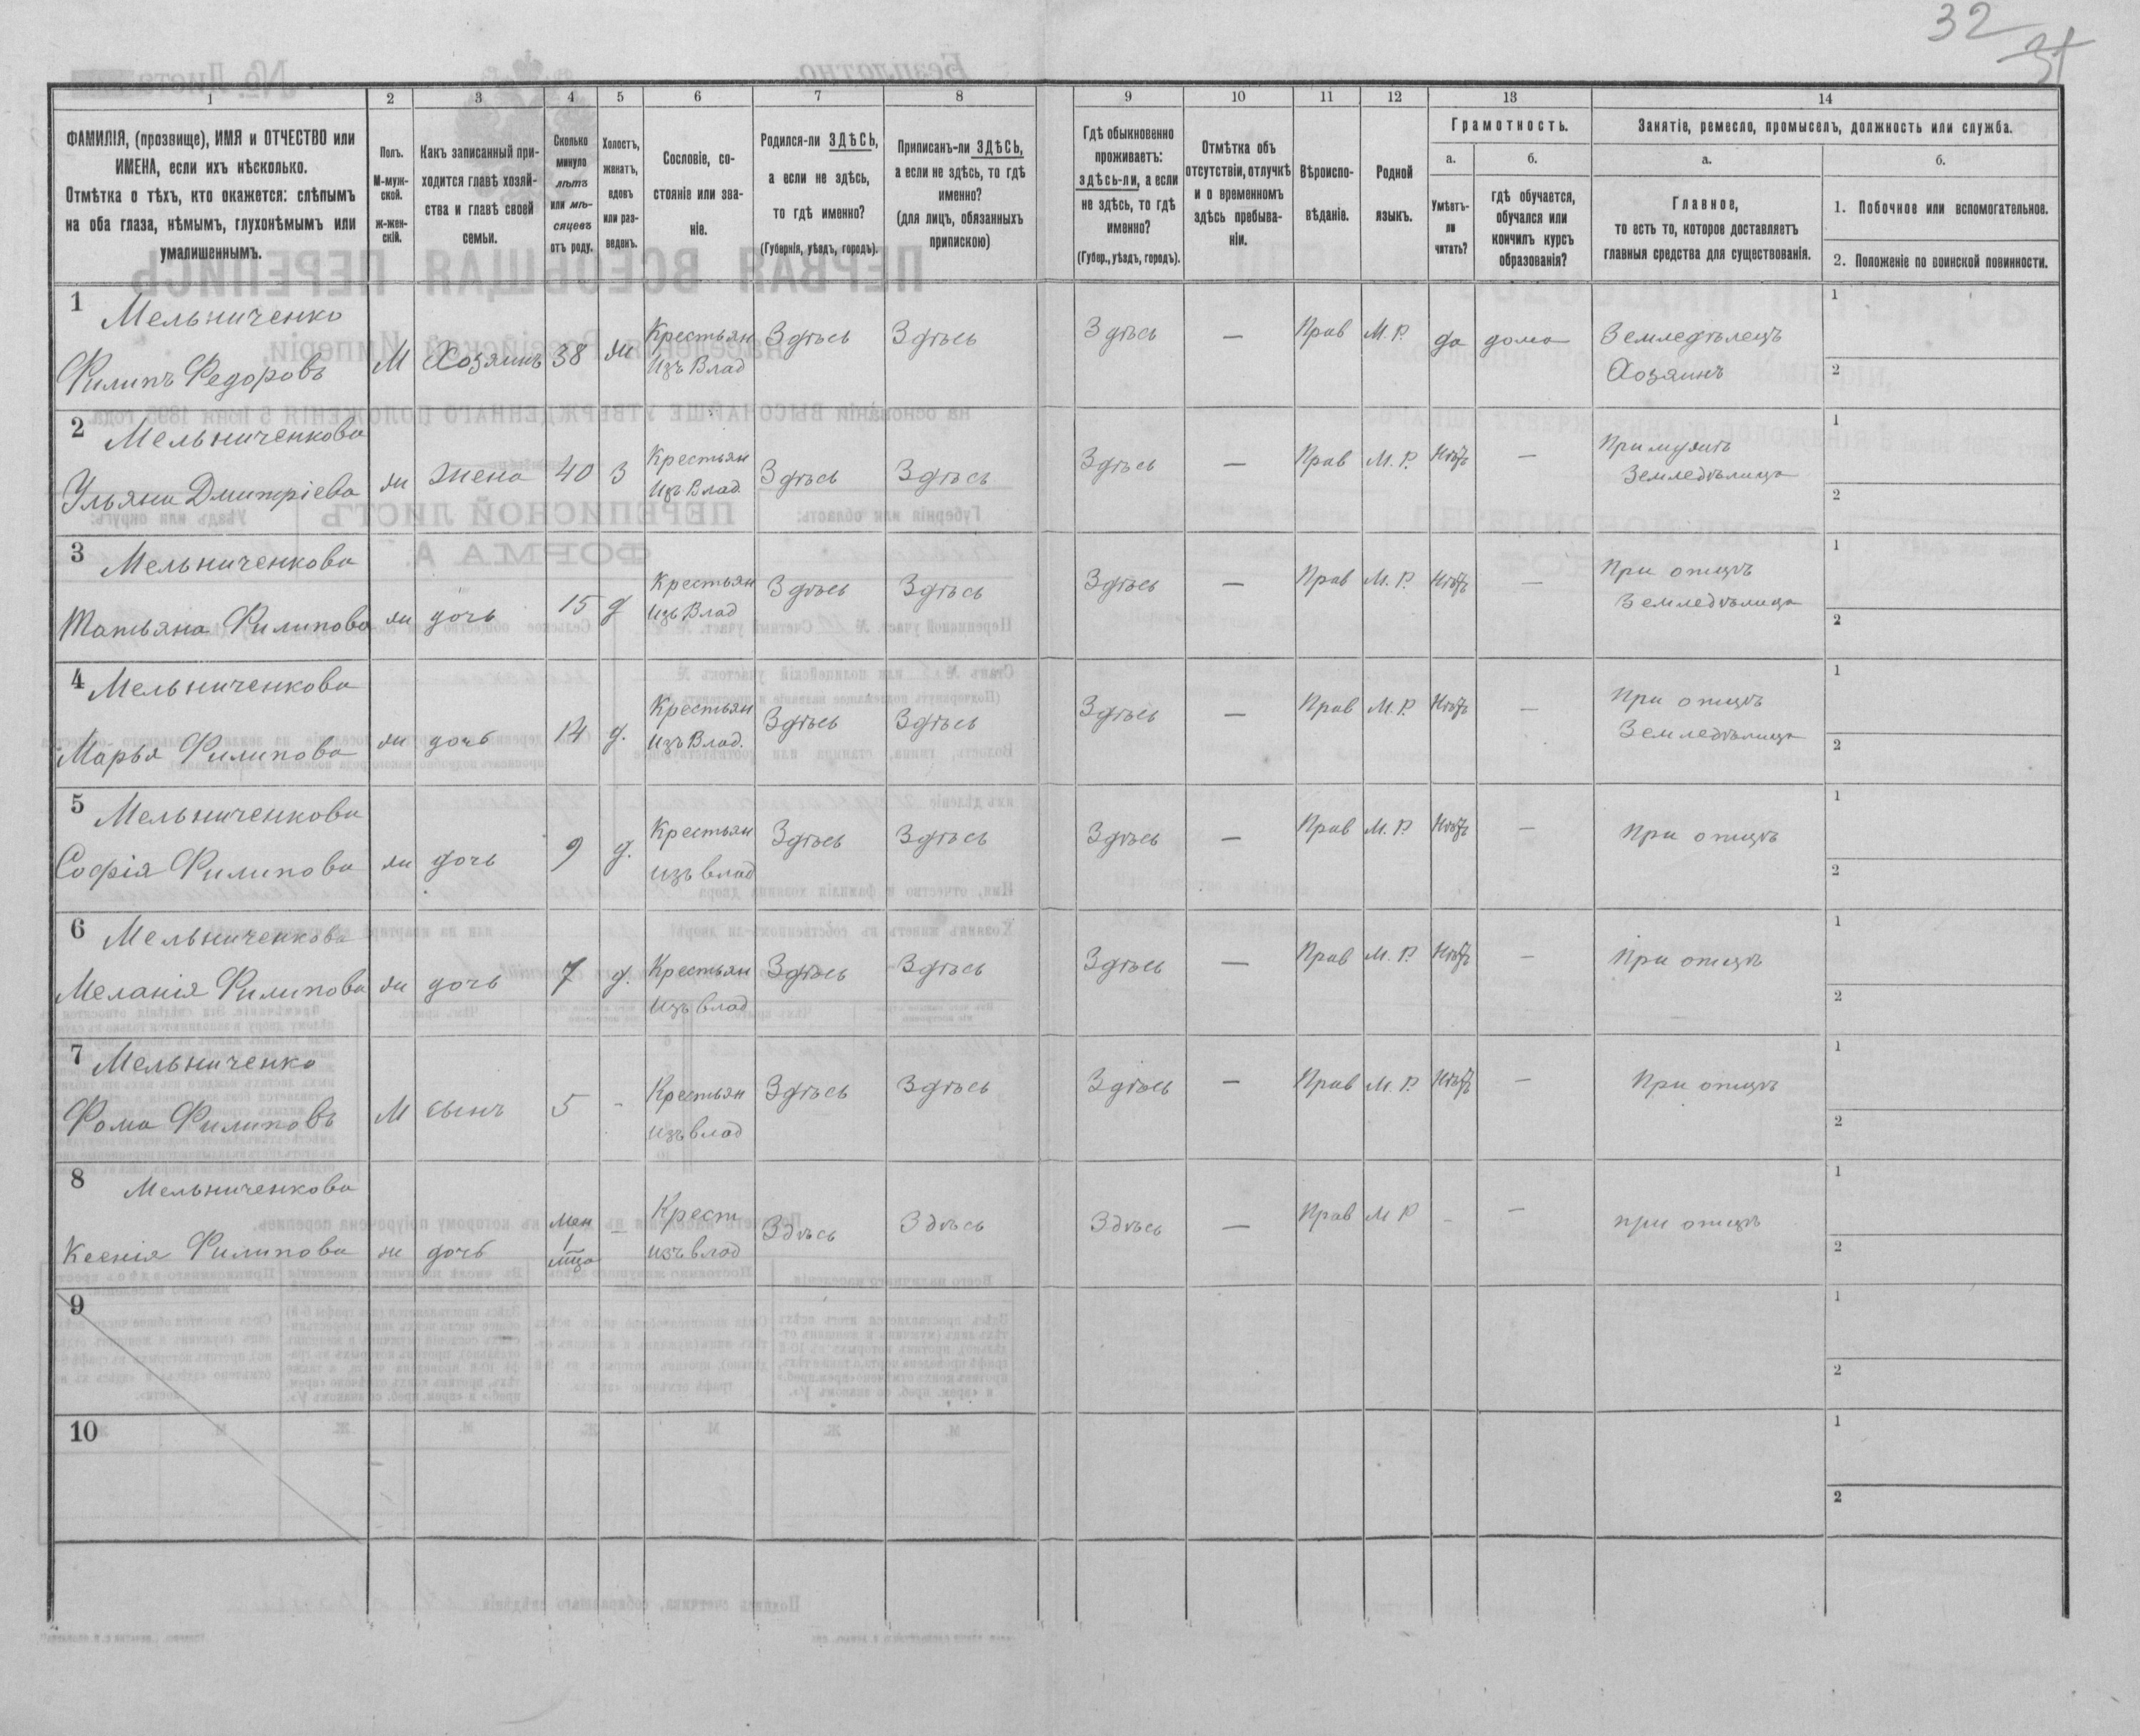 32
31
1 2 3 4 5 6 7 8 9 10 11 12 13 14
ФАМИЛІЯ, (прозвище), ИМЯ и ОТЧЕСТВО или
ИМЕНА, если ихъ нѣсколько.
Отмѣтка о тѣхъ, кто окажется: слѣпымъ
на оба глаза, нѣмымъ, глухонѣмымъ или
умалишеннымъ.
Полъ.
М-муж-
ской.
ж-жен-
скій.
Какъ записанный при-
ходится главѣ хозяй-
ства и главѣ своей
семьи.
Сколько
минуло
лѣтъ
или мѣ-
сяцевъ
отъ роду.
Холостъ,
женатъ,
вдовъ
или раз-
веденъ.
Сословіе, со-
стояніе или зва-
ніе.
Родился-ли ЗДѢСЬ,
а если не здѣсь,
то гдѣ именно?
(Губернія, уѣздъ, городъ).
Приписанъ-ли ЗДѢСЬ,
а если не здѣсь, то гдѣ
именно?
(для лицъ, обязанныхъ
припискою)
Гдѣ обыкновенно
проживаетъ:
здѣсь-ли, а если
не здѣсь, то гдѣ
именно?
(Губер., уѣздъ, городъ).
Отмѣтка объ
отсутствіи, отлучкѣ
и о временномъ
здѣсь пребыва-
ніи.
Вѣроиспо-
вѣданіе.
Родной
языкъ.
Грамотность.
а.
Умѣетъ-
ли
читать?
б.
гдѣ обучается,
обучался или
кончилъ курсъ
образованія?
Занятіе, ремесло, промыселъ, должность или служба.
а.
Главное,
то есть то, которое доставляетъ
главныя средства для существованія.
б.
1. Побочное или вспомогательное.
2. Положеніе по воинской повинности.
1 Мельниченко
Филипъ Федоровъ М Хозяинъ 38 ж Крестьян Здѣсь Здѣсь Здѣсь — Прав М. Р. да дома Земледѣлецъ 1
Изъ Влад Хозяинъ 2
2 Мельниченкова
Ульяна Дмитріева ж жена 40 З Крестьян Здѣсь Здѣсь Здѣсь — Прав М. Р. Нѣтъ — При мужѣ 1
Изъ Влад Земледѣлица 2
3 Мельниченкова
Татьяна Филипова ж дочь 15 д Крестьян Здѣсь Здѣсь Здѣсь — Прав М. Р. Нѣтъ — При отцѣ 1
Изъ Влад Земледѣлица 2
4 Мельниченкова
Марья Филипова ж дочь 14 д. Крестьян Здѣсь Здѣсь Здѣсь — Прав М. Р. Нѣтъ — При отцѣ 1
Изъ Влад. Земледѣлица 2
5 Мельниченкова
Софія Филипова ж дочь 9 д. Крестьян Здѣсь Здѣсь Здѣсь — Прав М. Р. Нѣтъ — При отцѣ 1
изъ влад 2
6 Мельниченкова
Меланія Филипова ж дочь 7 д. Крестьян Здѣсь Здѣсь Здѣсь — Прав М. Р. Нѣтъ — При отцѣ 1
изъ влад 2
7 Мельниченко
Фома Филиповъ М сынъ 5 - Крестьян Здѣсь Здѣсь Здѣсь — Прав М. Р. Нѣтъ — При отцѣ 1
изъ влад 2
8 Мельниченкова
Ксенія Филипова ж дочь 1 — Крест Здѣсь Здѣсь Здѣсь — Прав М Р - — при отцѣ 1
изъ влад 2
9 1
2
10 1
2